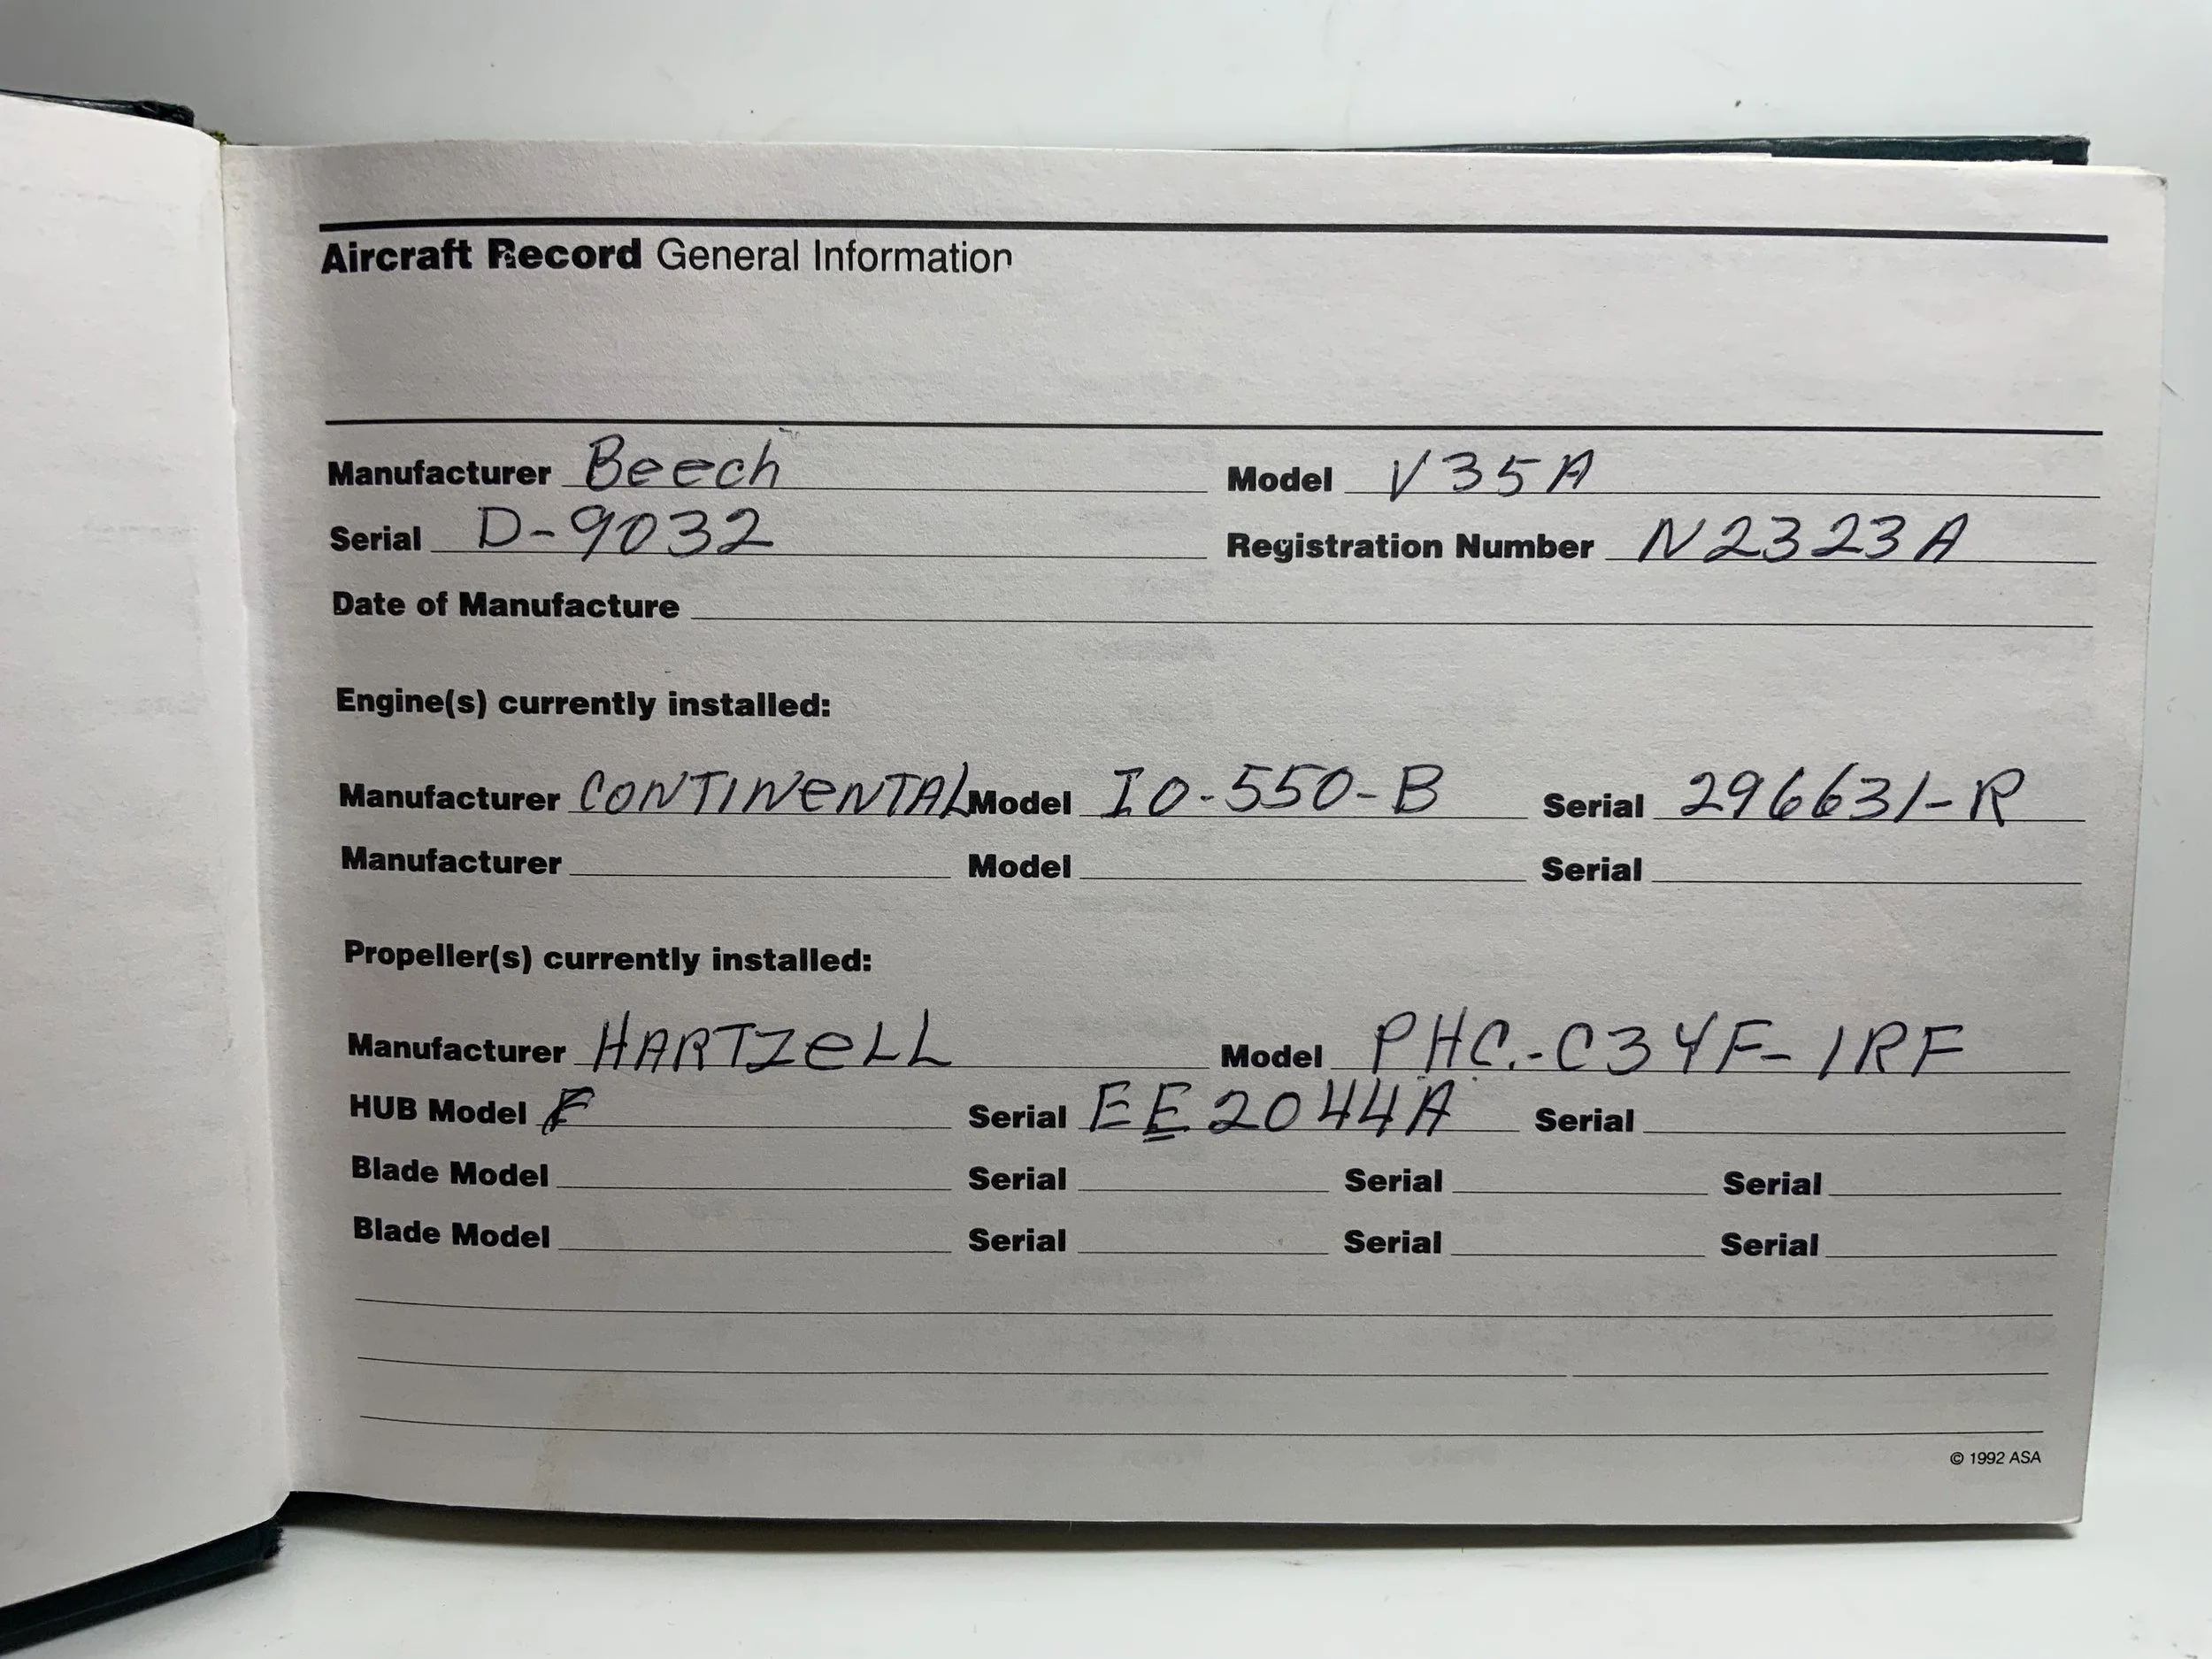 Aircraft Record General Information
Manufacturer Beech Model V35A
Serial D-9032 Registration Number N2323A
Date of Manufacture
Engine(s) currently installed:
Manufacturer CONTINeNTAL Model IO-550-B Serial 296631-R
Manufacturer Model Serial
Propeller(s) currently installed:
Manufacturer HARTZeLL Model PHC.-C3YF-1RF
HUB Model F Serial EE2044A Serial
Blade Model Serial Serial Serial
Blade Model Serial Serial Serial
© 1992 ASA